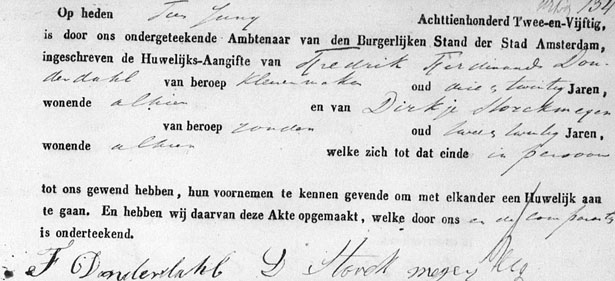 134
Op heden Tien Juny Achttienhonderd Twee-en-Vijftig,
is door ons ondergeteekende Ambtenaar van den Burgerlijken Stand der Stad Amsterdam,
ingeschreven de Huwelijks-Aangifte van Fredrik Ferdinand Don-
derdahl van beroep kleermaker oud drie & twintig Jaren,
wonende alhier en van Dirkje Storckmeyer
van beroep zonder oud twee & twintig Jaren,
wonende alhier welke zich tot dat einde in persoon
tot ons gewend hebben, hun voornemen te kennen gevende om met elkander een Huwelijk aan
te gaan. En hebben wij daarvan deze Akte opgemaakt, welke door ons en de comparanten
is onderteekend.
F Donderdahl D Storckmeyer